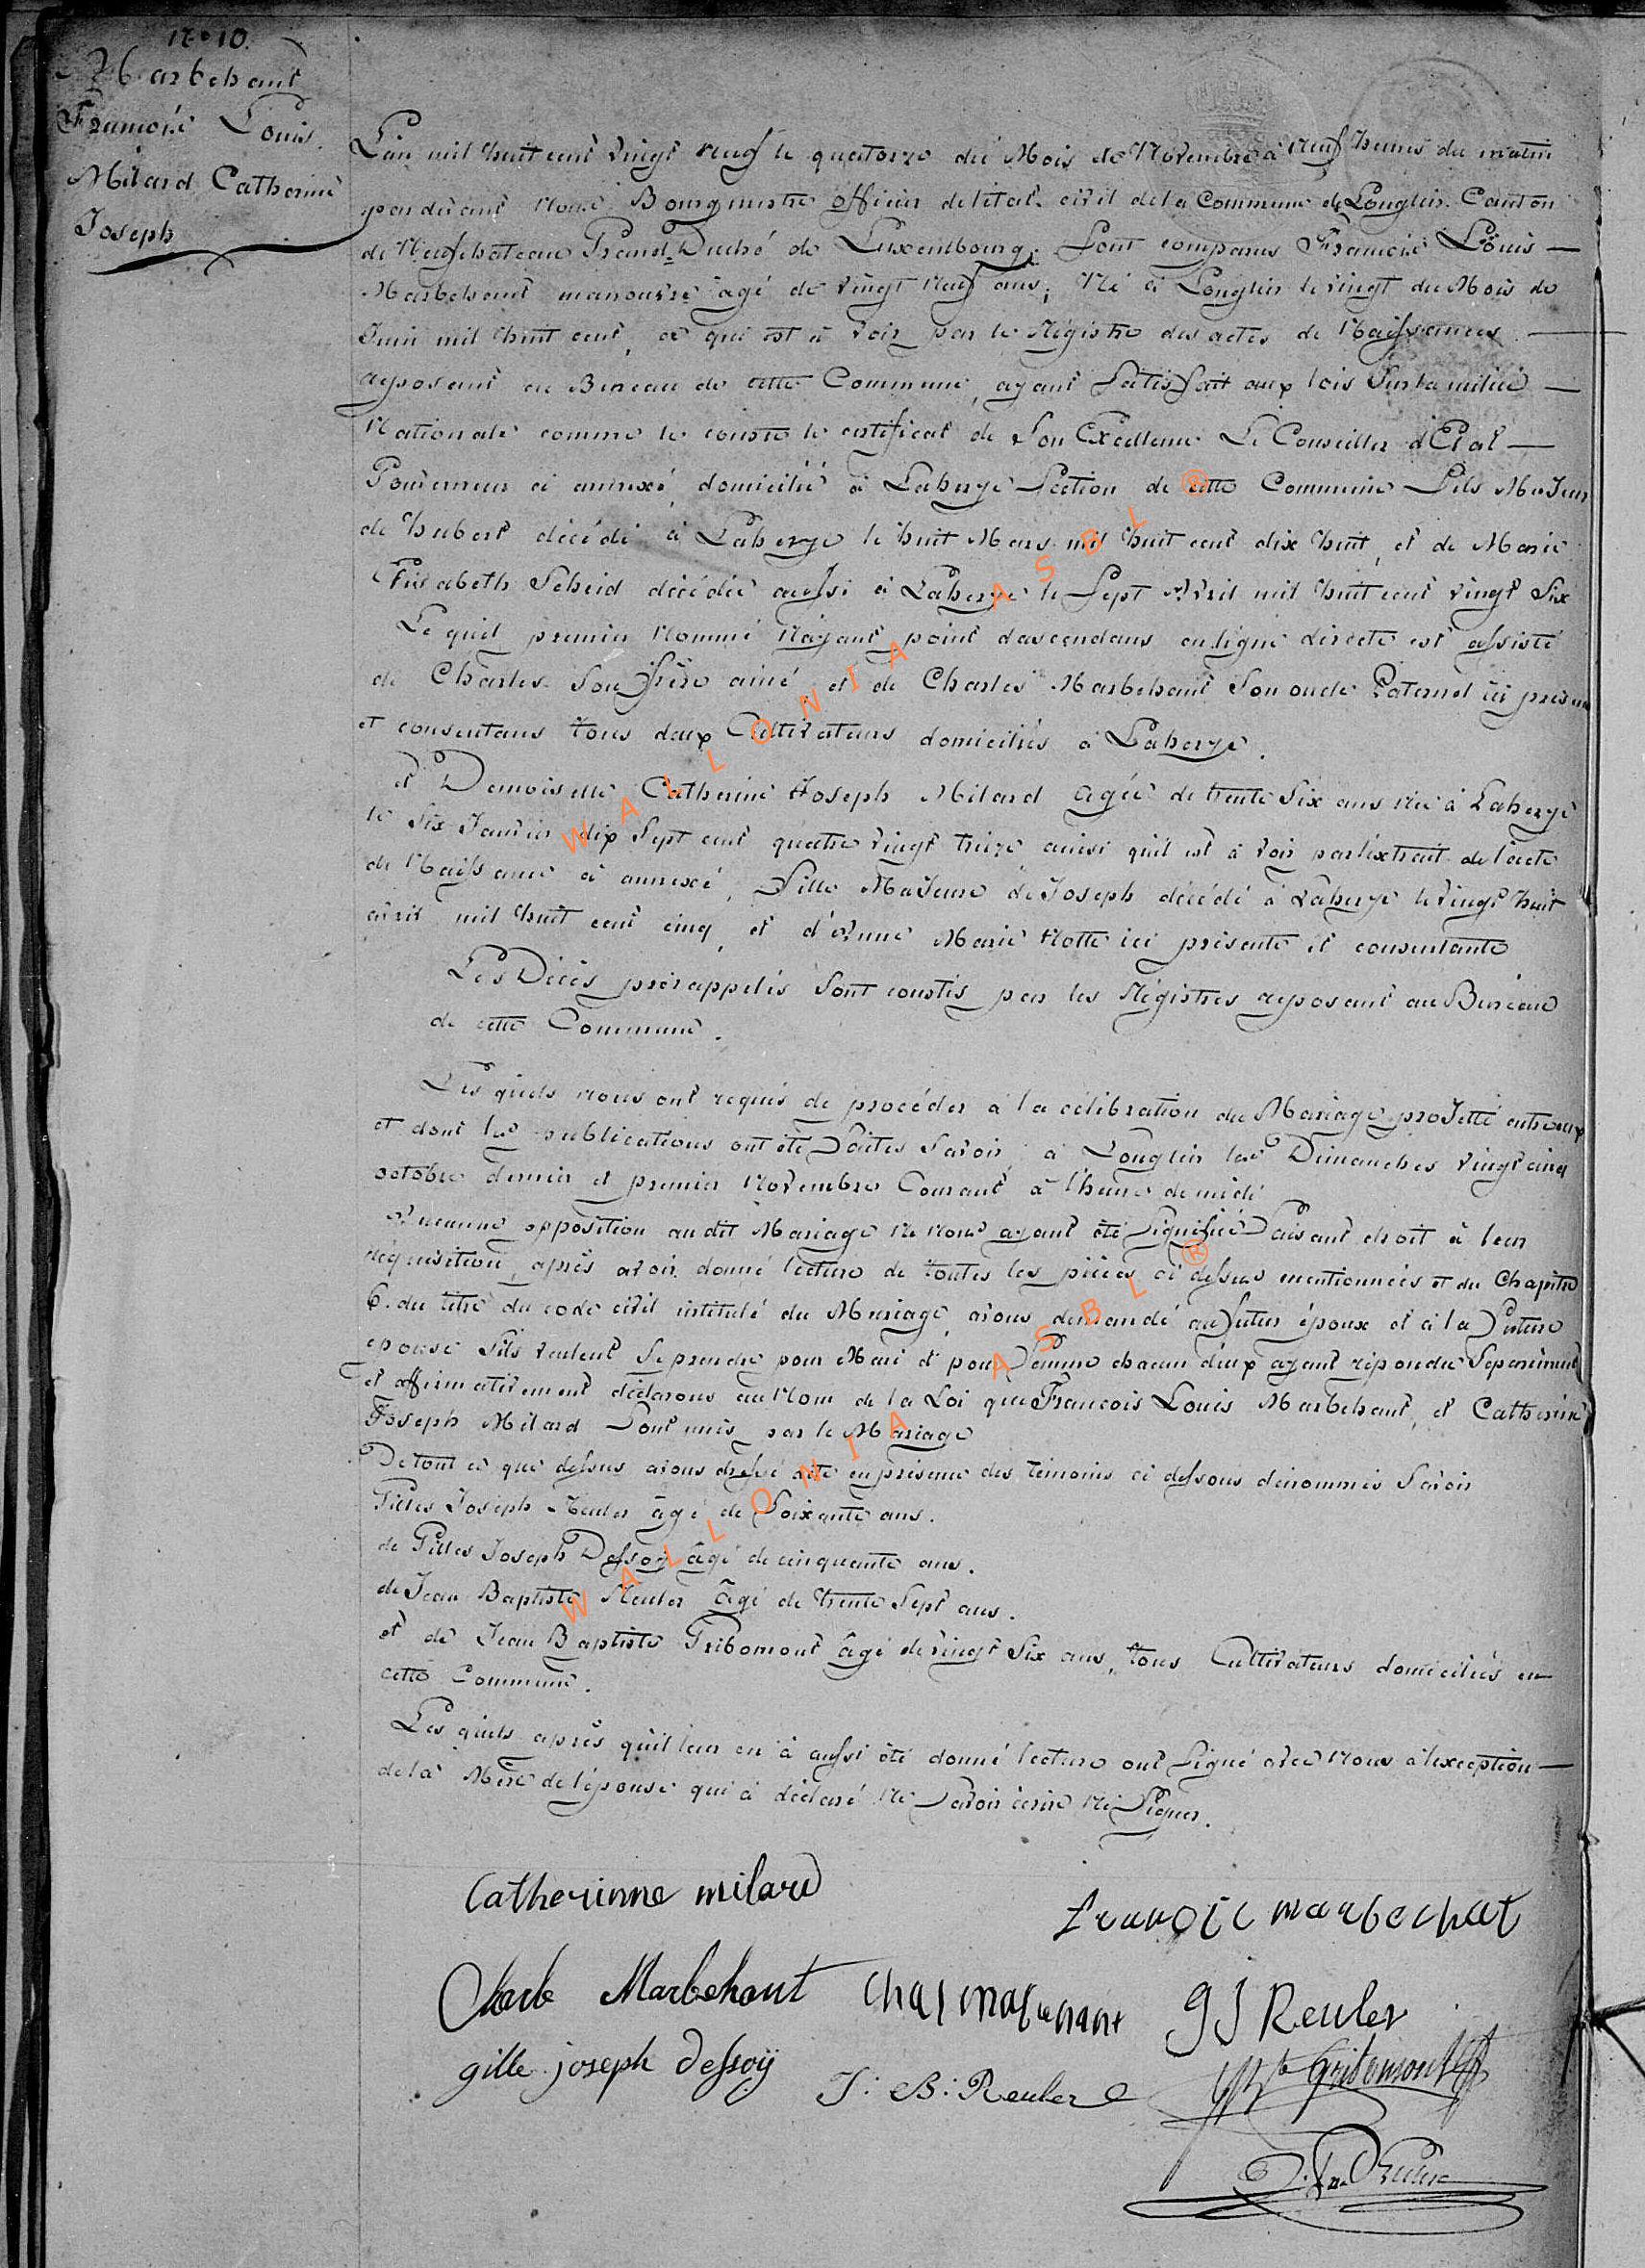 N° 10.
Marbehant
François Louis.
Milard Catherine
Joseph
L'an mil huit cent vingt neuf le quatorze du Mois de Novembre à neuf heures du matin
pardevant Nous Bourgmestre officier de l'état civil de la Commune de Longlier Canton
de Neufchateau Grand-Duché de Luxembourg; Sont comparus François Louis —
Marbehant manouvre âgé de vingt Neuf ans, Né à Longlier le vingt du Mois de
Juin mil huit cent, ce qui est à voir par le Régistre des actes de Naissances —
reposant au Bureau de cette Commune, ayant Satisfait aux lois Sur la milice —
Nationale comme le conste le certificat de Son Excellence Le Conseiller d'Etat —
Gouverneur ci annexé, domicilié à Laherye Section de cette Commune Fils Majeur
de hubert décédé à Laherye le huit Mars mil huit cent dix huit, et de Marie
Elisabeth Scheid décédée aussi à Laherye le Sept Avril mil huit cent vingt Six
Le quel premier Nommé N'ayant point d'ascendans en ligne directe est assisté
de Charles Son frère ainé et de Charles Marbehant Son oncle Paternel ici présens
et consentans tous deux Cultivateurs domiciliés à Laherye.
et Demoiselle Catherine Joseph Milard agée de trente Six ans née à Laherye
le Six Janvier dix Sept cent quatre vingt treize ainsi qu'il est à voir par l'extrait de l'acte
de Naissance ci annexé, Fille Majeure de Joseph décédé à Laherye le vingt huit
avril mil huit cent cinq, et d'Anne Marie Notte ici présente et consentante
Les Décès prérappelés Sont constés par les Régistres reposant au Bureau
de cette Commune.
Les quels nous ont requis de procéder à la célébration du Mariage projetté entre eux
et dont les publications ont été Faites Savoir, à Longlier les Dimanches vingt cinq
octobre dernier et premier Novembre Courant à l'heure de midi
Aucune opposition au dit Mariage Ne Nous ayant été Signifiée Faisant droit à leur
réquisition, après avoir donné lecture de toutes les pièces ci dessus mentionnées et du Chapitre
6. du titre du code civil intitulé du Mariage, avons demandé au futur époux et à la Future
epouse S'ils veulent Se prendre pour Mari et pour Femme chacun d'eux ayant répondu Séparément
et affirmativement déclarons au Nom de la Loi que François Louis Marbehant, et Catherine
Joseph Milard Sont unis par le Mariage
De tout ce que dessus avons dressé acte en présence des témoins ci dessous dénommés Savoir
Gilles Joseph Reuler âgé de Soixante ans.
de Gilles Joseph Dessoy âgé de cinquante ans.
de Jean Baptiste Reuler âgé de trente Sept ans.
et de Jean Baptiste Gribomont âgé de vingt Six ans, tous Cultivateurs domiciliés en
cette Commune.
Les quels après qu'il leur en à aussi été donné lecture ont Signé avec Nous à l'exception —
de la Mère de l'épouse qui à déclaré Ne Savoir écrire Ni Signer.
Catherinne milard
françoic marbechat
Charle Marbehant
GJ Reuler
gille joseph dessoÿ
J: B: Reuler
Gribomont
WALLONIA ASBL ®
WALLONIA ASBL ®